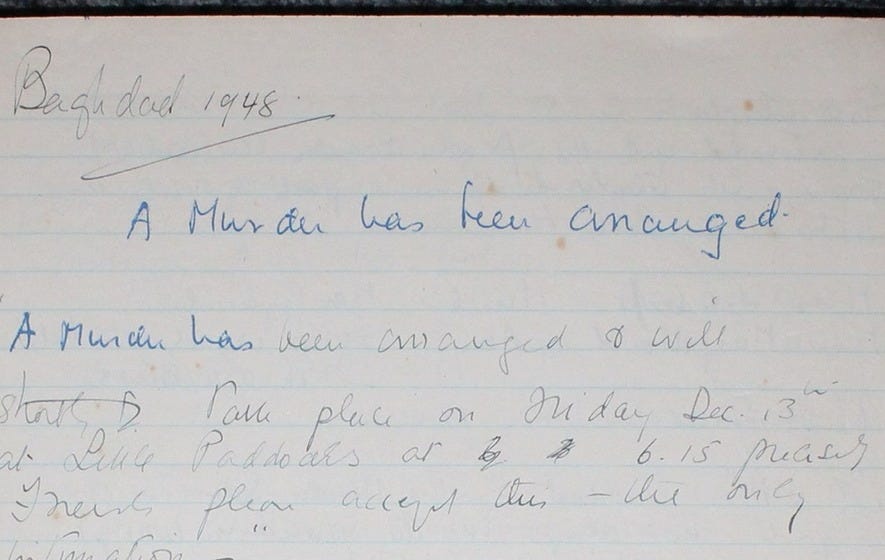 Baghdad 1948.
A Murder has been arranged.
A Murder has been arranged & will
shortly take place on Friday Dec. 13th
at Little Paddocks at 6.15 precisely
Friends please accept this – the only
intimation –